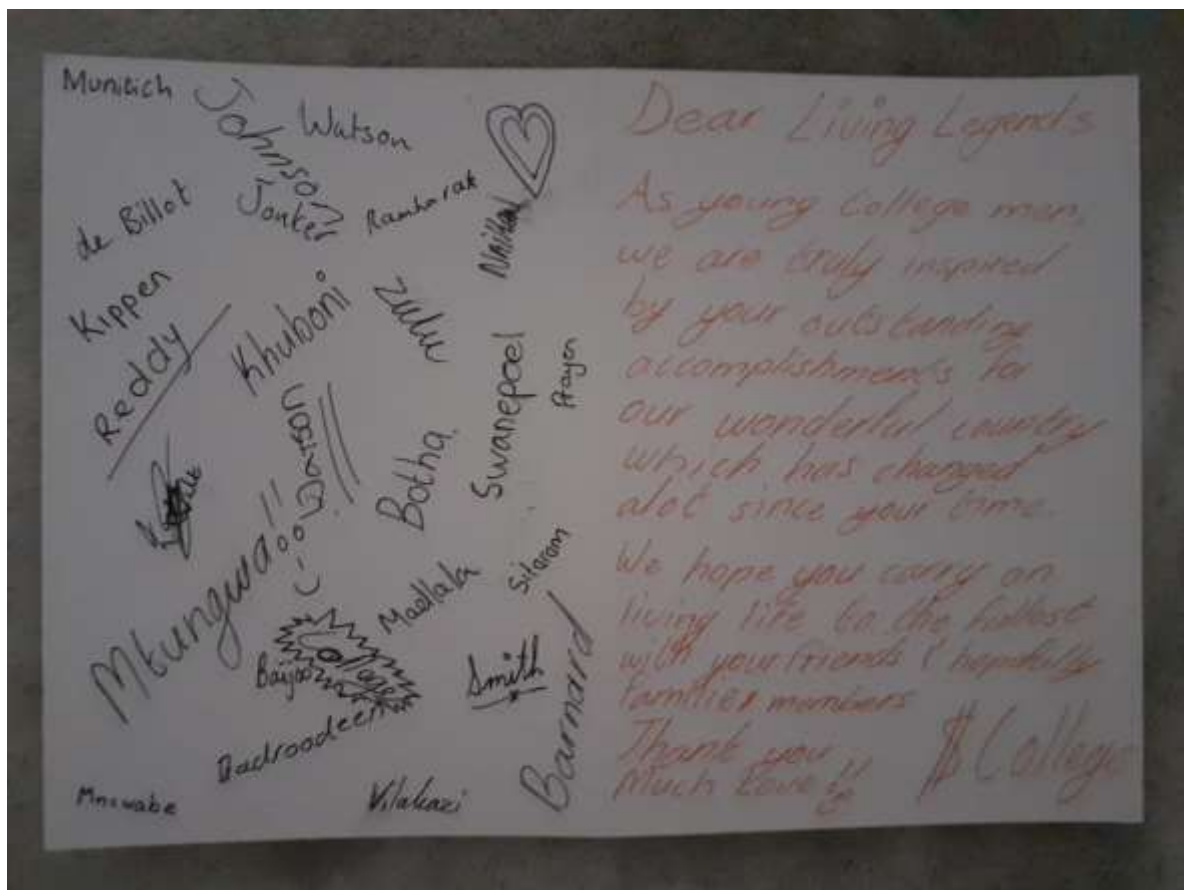 Munitich
Johnson
Watson
Jonker
Ramharak
de Billot
Naikal
Kippen
Khuboni
Zulu
Reddy
Swanepoel
Prayen
Lawson
Botha
Mtungwa!!
Silaram
Madlala
Baijoo
College
Smith
Barnard
Badroodeen
Mncwabe
Vilakazi
Dear Living Legends
As young College men,
we are truly inspired
by your outstanding
accomplishments for
our wonderful country
which has changed
alot since your time.
We hope you carry on
living life to the fullest
with your friends & hopefully
families members
Thank you
Much Love
$College